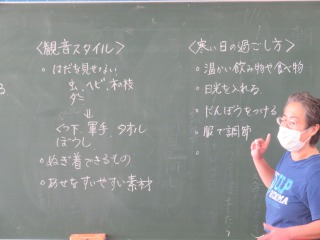 〈観音スタイル〉
○ はだを見せない
虫、ヘビ、木の枝
ダニ
⇓
くつ下 軍手 タオル
ぼうし
○ ぬぎ着できるもの
○ あせをすいやすい素材
〈寒い日の過ごし方〉
○ 温かい飲み物や食べ物
○ 日光を入れる
○ だんぼうをつける
○ 服で調節
○